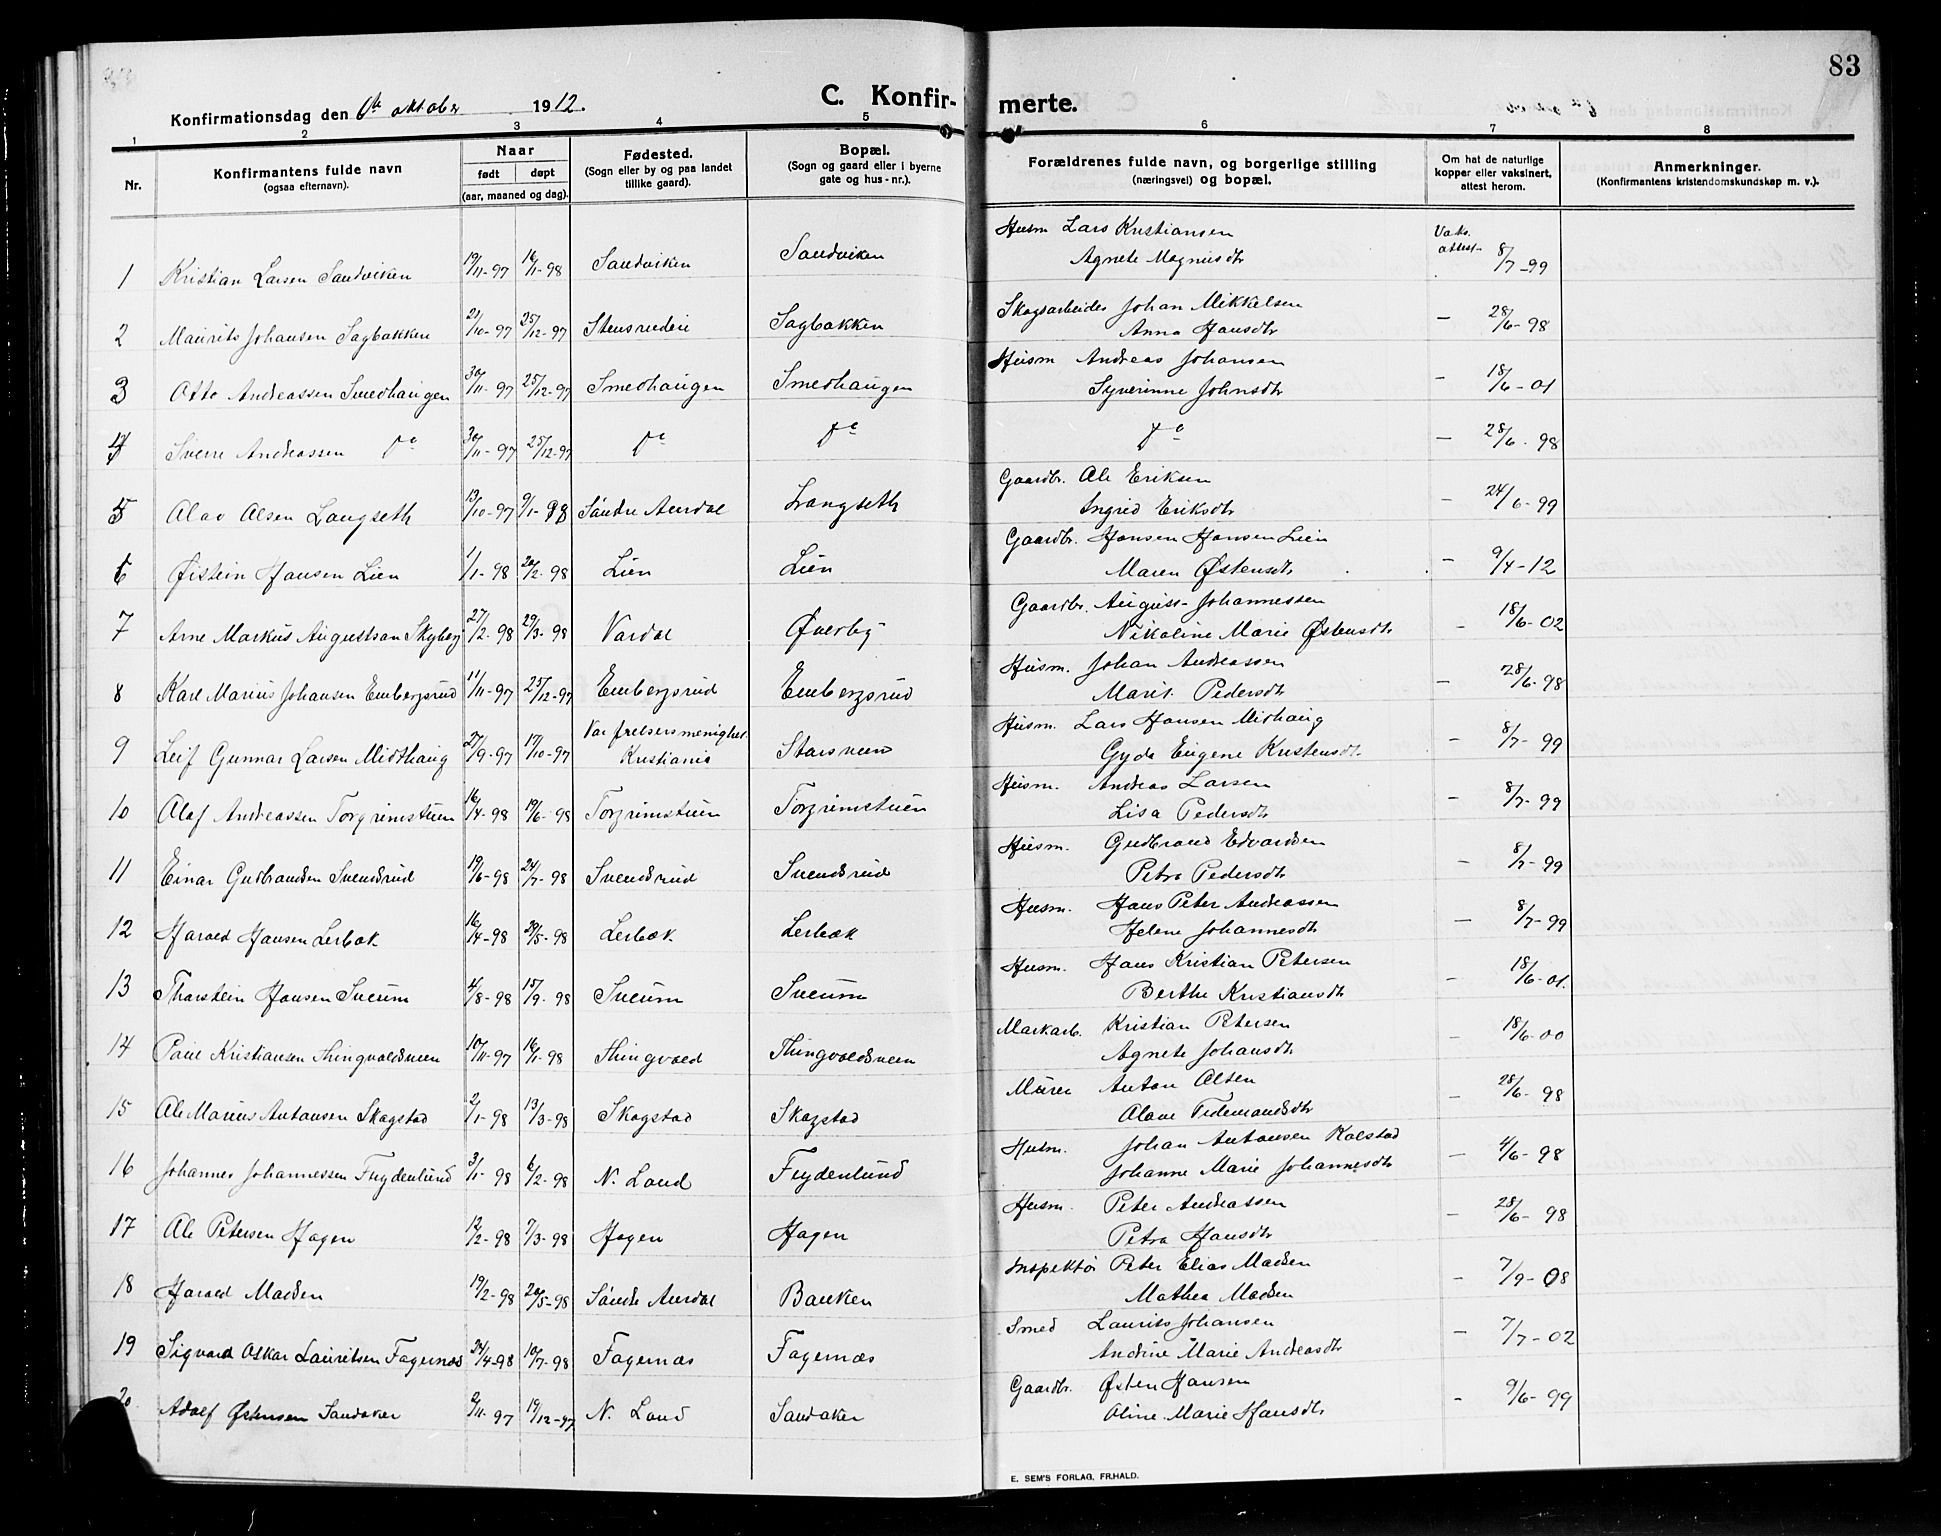 83
Konfirmationsdag den 6te oktober 1912.
C. Konfir-merte.
1 2 3 4 5 6 7 8
Nr.
Konfirmantens fulde navn
(ogsaa efternavn).
Naar
født døpt
(aar, maaned og dag).
Fødested.
(Sogn eller by og paa landet
tillike gaard).
Bopæl.
(Sogn og gaard eller i byerne
gate og hus-nr.).
Forældrenes fulde navn, og borgerlige stilling
(næringsvei) og bopæl.
Om hat de naturlige
kopper eller vaksinert,
attest herom.
Anmerkninger.
(Konfirmantens kristendomskundskap m. v.).
Husm Lars Kristiansen Vaks.
1 Kristian Larsen Sandviken 19/11-97 16/1-98 Sandviken Sandviken Agnete Magnusdtr attest- 8/7-99
Skogsarbeider Johan Mikkelsen
2 Maurits Johansen Sagbakken 21/10-97 25/12-97 Stensrudeie Sagbakken Anna Hansdtr — 28/6-98
Husm Andreas Johansen
3 Otto Andreassen Smedhaugen 30/11-97 25/12-97 Smedhaugen Smedhaugen Syverinne Johnsdtr - 18/6-01
4 Sverre Andreassen do 30/11-97 25/12-97 do do do — 28/6-98
Gaardbr. Ole Eriksen
5 Olav Olsen Langseth 13/10-97 9/1-98 Søndre Aurdal Langseth Ingrid Eriksdtr - 24/6-99
Gaardbr. Hansen Hansen Lien
6 Øistein Hansen Lien 1/1-98 20/2-98 Lien Lien Maren Østensdtr - 9/4-12
Gaardbr. August Johannessen
7 Arne Markus Augustsan Skyberg 27/2-98 29/3-98 Vardal Øverby Nikoline Marie Østensdtr - 18/6-02
Husm. Johan Andreassen
8 Karl Marius Johansen Embergsrud 11/11-97 25/12-97 Embergsrud Embergsrud Marit Pedersdtr — 28/6-98
Husm. Lars Hansen Midhaug
9 Leif Gunnar Larsen Midthaug 27/9-97 17/10-97 Var frelsers menighet Kristiania Starsveen Gyda Eugene Kristensdtr - 8/7-99
Husm. Andreas Larsen
10 Olaf Andreassen Torgrimstuen 16/4-98 19/6-98 Torgrimstuen Torgrimstuen Lisa Pedersdtr - 8/7-99
Husm. Gudbrand Edvardsen
11 Einar Gudbrandsen Svendsrud 19/6-98 24/7-98 Svendsrud Svendsrud Petra Pedersdtr — 8/7-99
Husm. Hans Peter Andreassen
12 Harald Hansen Lerbæk 16/4-98 29/5-98 Lerbæk Lerbæk Helene Johannesdtr — 8/7-99
Husm. Hans Kristian Petersen
13 Thorstein Hansen Sveum 4/8-98 15/9-98 Sveum Sveum Berthe Kristiansdtr - 18/6-01.
Markarb. Kristian Petersen
14 Paul Kristiansen Thingvoldsveen 10/11-97 16/1-98 Thingvold Thingvoldsveen Agnete Johansdtr - 18/6-00
Murer Anton Olsen
15 Ole Marius Antonsen Skogstad 2/1-98 13/3-98 Skogstad Skogstad Olave Tidemandsdtr - 28/6-98
Husm. Johan Antonsen Kolstad
16 Johannes Johannessen Frydenlund 3/1-98 6/2-98 N. Land Frydenlund Johanne Marie Johannesdtr — 4/6-98
Husm. Peter Andreassen
17 Ole Petersen Hagen 12/2-98 7/3-98 Hagen Hagen Petra Hansdtr - 28/6-98
Inspektør Peter Elias Madsen
18 Harald Madsen 19/2-98 20/5-98 Søndre Aurdal Bauken Mathea Madsen - 7/9-08
Smed Laurits Johansen
19 Sigvard Oskar Lauritsen Fagernæs 24/4-98 10/7-98 Fagernæs Fagernæs Andrine Marie Andreasdtr - 7/7-02
Gaardbr. Østen Hansen
20 Adolf Østensen Sandaker 9/11-97 19/12-97 N. Land Sandaker Oline Marie Hansdtr - 9/6-99
E. SEM'S FORLAG, FR.HALD.